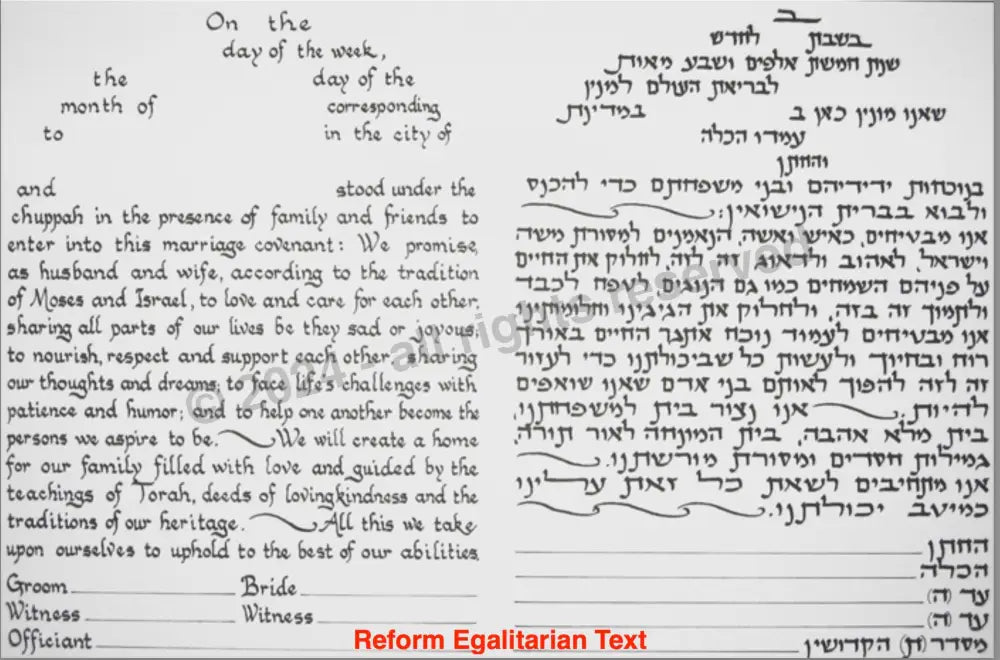 On the
day of the week,
the day of the
month of corresponding
to in the city of
and stood under the
chuppah in the presence of family and friends to
enter into this marriage covenant: We promise,
as husband and wife, according to the tradition
of Moses and Israel, to love and care for each other,
sharing all parts of our lives be they sad or joyous;
to nourish, respect and support each other, sharing
our thoughts and dreams; to face life's challenges with
patience and humor; and to help one another become the
persons we aspire to be. We will create a home
for our family filled with love and guided by the
teachings of Torah, deeds of lovingkindness and the
traditions of our heritage. All this we take
upon ourselves to uphold to the best of our abilities.
Groom Bride
Witness Witness
Officiant
ב
בשבת לחדש
שנת חמשת אלפים ושבע מאות
לבריאת העולם למנין
שאנו מונין כאן ב במדינת
עמדו הכלה
והחתן
בנוכחות ידידיהם ובני משפחתם כדי להכנס
ולבוא בברית הנישואין:
אנו מבטיחים, כאיש ואשה, הנאמנים למסורת משה
וישראל, לאהוב ולדאוג זה לזה, לחלוק את החיים
על פניהם השמחים כמו גם הנוגים לטפח לכבד
ולתמוך זה בזה, ולחלוק את הגיגינו וחלומותינו
אנו מבטיחים לעמוד נוכח אתגר החיים באורך
רוח ובחיוך ולעשות כל שביכולתנו כדי לעזור
זה לזה להפוך לאותם בני אדם שאנו שואפים
להיות. אנו נציר בית למשפחתנו,
בית מלא אהבה, בית המונחה לאור תורה,
גמילות חסדים ומסורת מורשתנו.
אנו מתחיבים לשאת כל זאת עלינו
כמיטב יכולתנו.
החתן
הכלה
עד (ה)
עד (ה)
מסדר (ת) הקדושין
© 2024 - all rights reserved
Reform Egalitarian Text